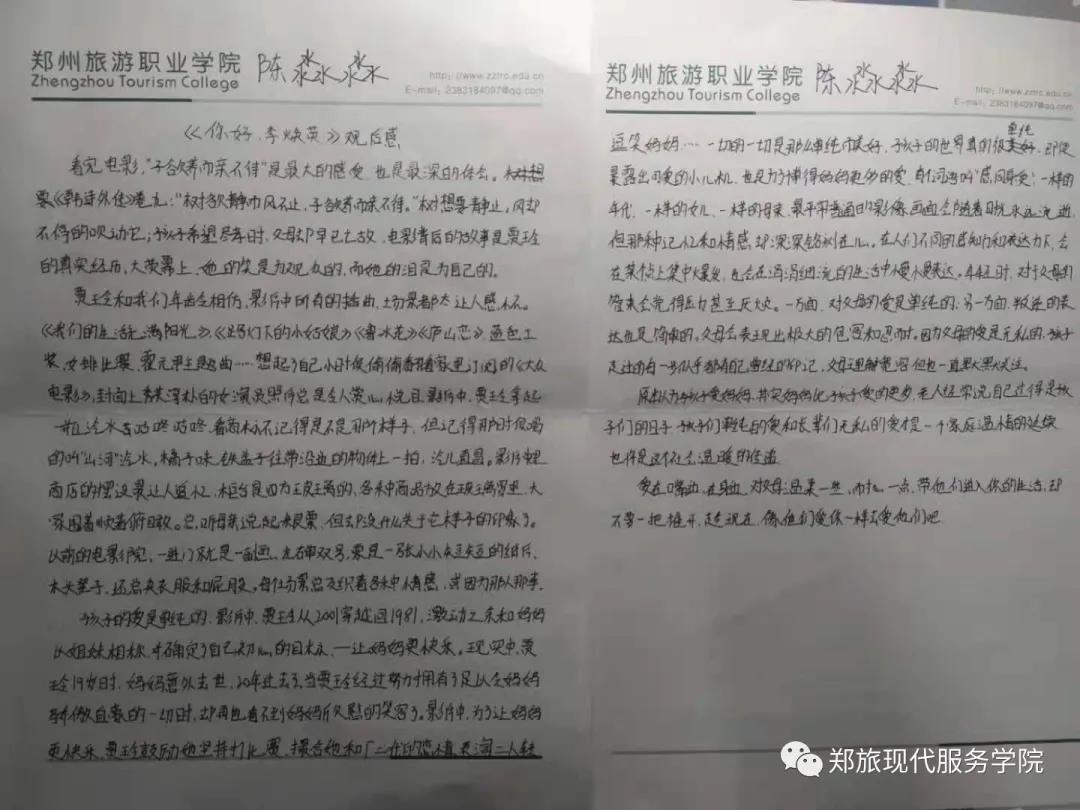 郑州旅游职业学院 陈淼淼
Zhengzhou Tourism College
http://www.zztrc.edu.cn
E-mail: 2383184097@qq.com
《你好,李焕英》观后感
看完电影,"子欲养而亲不待"是最大的感受,也是最深的体会。
《韩诗外传》卷九:"树欲静而风不止,子欲养而亲不待。"树想要静止,风却
不停的吹动它;孩子希望尽孝时,父母却早已亡故。电影背后的故事是贾玲
的真实经历,大荧幕上,她的笑是为观众的,而她的泪是为自己的。
贾玲和我们年龄相仿,影片中所有的插曲、场景都太让人感怀。
《我们的生活充满阳光》、《路灯下的小姑娘》《鲁冰花》《庐山恋》蓝色工
装、女排比赛、霍元甲主题曲……想起了自己小时候偷偷翻看家里订阅的《大众
电影》,封面上
影片中,贾玲拿起
一瓶汽水
咕咚咕咚,看商标不记得是不是那个样子,但记得那时候喝
的叫"山河"汽水,橘子味,铁盖子往带沿边的物体上一拍,汽儿直冒。影片里
商店的摆设最让人追忆,柜台是四方玻璃的,各种商品放在玻璃窗里,大
家围着
但却没什么关于它样子的印象了。
以前的电影院,一进门就是
左右单双号,票是一张小小
的纸片,
木头凳子,还总夹衣服和屁股。每件场景总交织着各种情感,或因为那人那事。
孩子的爱是单纯的,影片中,贾玲从2001穿越回1981,激动之余和妈妈
以姐妹相称,并确定了自己初心的目标,——让妈妈更快乐。现实中,贾
玲19岁时,妈妈意外去世,20年过去了,当贾玲经过努力拥有了足以令妈妈
骄傲自豪的一切时,却再也看不到妈妈
的笑容了。影片中,为了让妈妈
更快乐,贾玲鼓励她坚持打比赛,撮合她和厂二代的恋情,表演二人转
郑州旅游职业学院 陈淼淼
Zhengzhou Tourism College
http://www.zztrc.edu.cn
E-mail: 2383184097@qq.com
逗笑妈妈……一切的一切是那么单纯而美好,孩子的世界真的很单纯美好,即使
暴露出可爱的小心机,也是为了博得妈妈更多的爱,
感同身受:一样的
年代,一样的女儿,一样的母亲,最平常普通的影像画面会随着时光永远流逝,
但那种记忆和情感却深深铭刻在心。在人们不同的感知力和表达力下,会
在某个点上集中爆发,也会在涓涓细流的生活中慢慢表达。年轻时,对于父母的
管束会觉得压力甚至厌烦。一方面,对父母的爱是单纯的;另一方面,叛逆的表
达也是简单的。父母会表现出极大的包容和忍耐,因为父母的爱是无私的,孩子
走过的每一步似乎都有自己曾经的印记,父母理解宽容但也一直默默关注。
原以为孩子爱妈妈,其实妈妈比孩子爱的更多,老人经常说自己过得是孩
子们的日子,孩子们单纯的爱和长辈们无私的爱才是一个家庭温情的延续
也许是这个社会温暖的
爱在嘴边,在身边,对父母温柔一些,耐心一点,带他们进入你的生活,却
不要一把推开,趁现在,像他们爱你一样去爱他们吧
郑旅现代服务学院